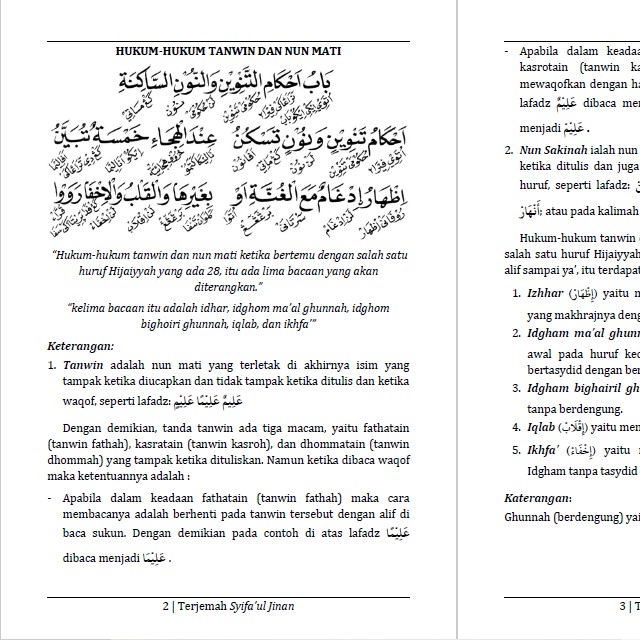 HUKUM-HUKUM TANWIN DAN NUN MATI
بَابُ اَحْكَامِ التَّنْوِيْنِ وَالنُّوْنِ السَّاكِنَةِ
اَحْكَامُ تَنْوِيْنٍ وَنُوْنٍ تَسْكُنُ عِنْدَ الْهِجَاءِ خَمْسَةٌ تُبَيَّنُ
اِظْهَارُ اِدْغَامٌ مَعَ الْغُنَّةِ اَوْ بِغَيْرِهَا وَالْقَلْبُ وَالْاِخْفَا رَوَوْا
“Hukum-hukum tanwin dan nun mati ketika bertemu dengan salah satu
huruf Hijaiyyah yang ada 28, itu ada lima bacaan yang akan
diterangkan.”
“kelima bacaan itu adalah idhar, idghom ma’al ghunnah, idghom
bighoiri ghunnah, iqlab, dan ikhfa’”
Keterangan:
1. Tanwin adalah nun mati yang terletak di akhirnya isim yang
tampak ketika diucapkan dan tidak tampak ketika ditulis dan ketika
waqof, seperti lafadz: عَلِيْمٌ عَلِيْمًا عَلِيْمٍ
Dengan demikian, tanda tanwin ada tiga macam, yaitu fathatain
(tanwin fathah), kasratain (tanwin kasroh), dan dhommatain (tanwin
dhommah) yang tampak ketika dituliskan. Namun ketika dibaca waqof
maka ketentuannya adalah :
- Apabila dalam keadaan fathatain (tanwin fathah) maka cara
membacanya adalah berhenti pada tanwin tersebut dengan alif di
baca sukun. Dengan demikian pada contoh di atas lafadz عَلِيْمًا
dibaca menjadi عَلِيْمَا .
2 | Terjemah Syifa’ul Jinan
- Apabila dalam keada
kasrotain (tanwin ka
mewaqofkan dengan ha
lafadz عَلِيْمٌ dibaca men
menjadi عَلِيْمْ .
2. Nun Sakinah ialah nun
ketika ditulis dan juga
huruf, seperti lafadz:
أَنْهَارٌ; atau pada kalimah
Hukum-hukum tanwin
salah satu huruf Hijaiyyah
alif sampai ya’, itu terdapat
1. Izhhar (إِظْهَارْ) yaitu m
yang makhrajnya deng
2. Idgham ma’al ghunn
awal pada huruf ked
bertasydid dengan ber
3. Idgham bighairil gh
tanpa berdengung.
4. Iqlab (إِقْلَابْ) yaitu men
5. Ikhfa’ (إِخْفَاءْ) yaitu
Idgham tanpa tasydid
Katerangan:
Ghunnah (berdengung) yai
3 | T